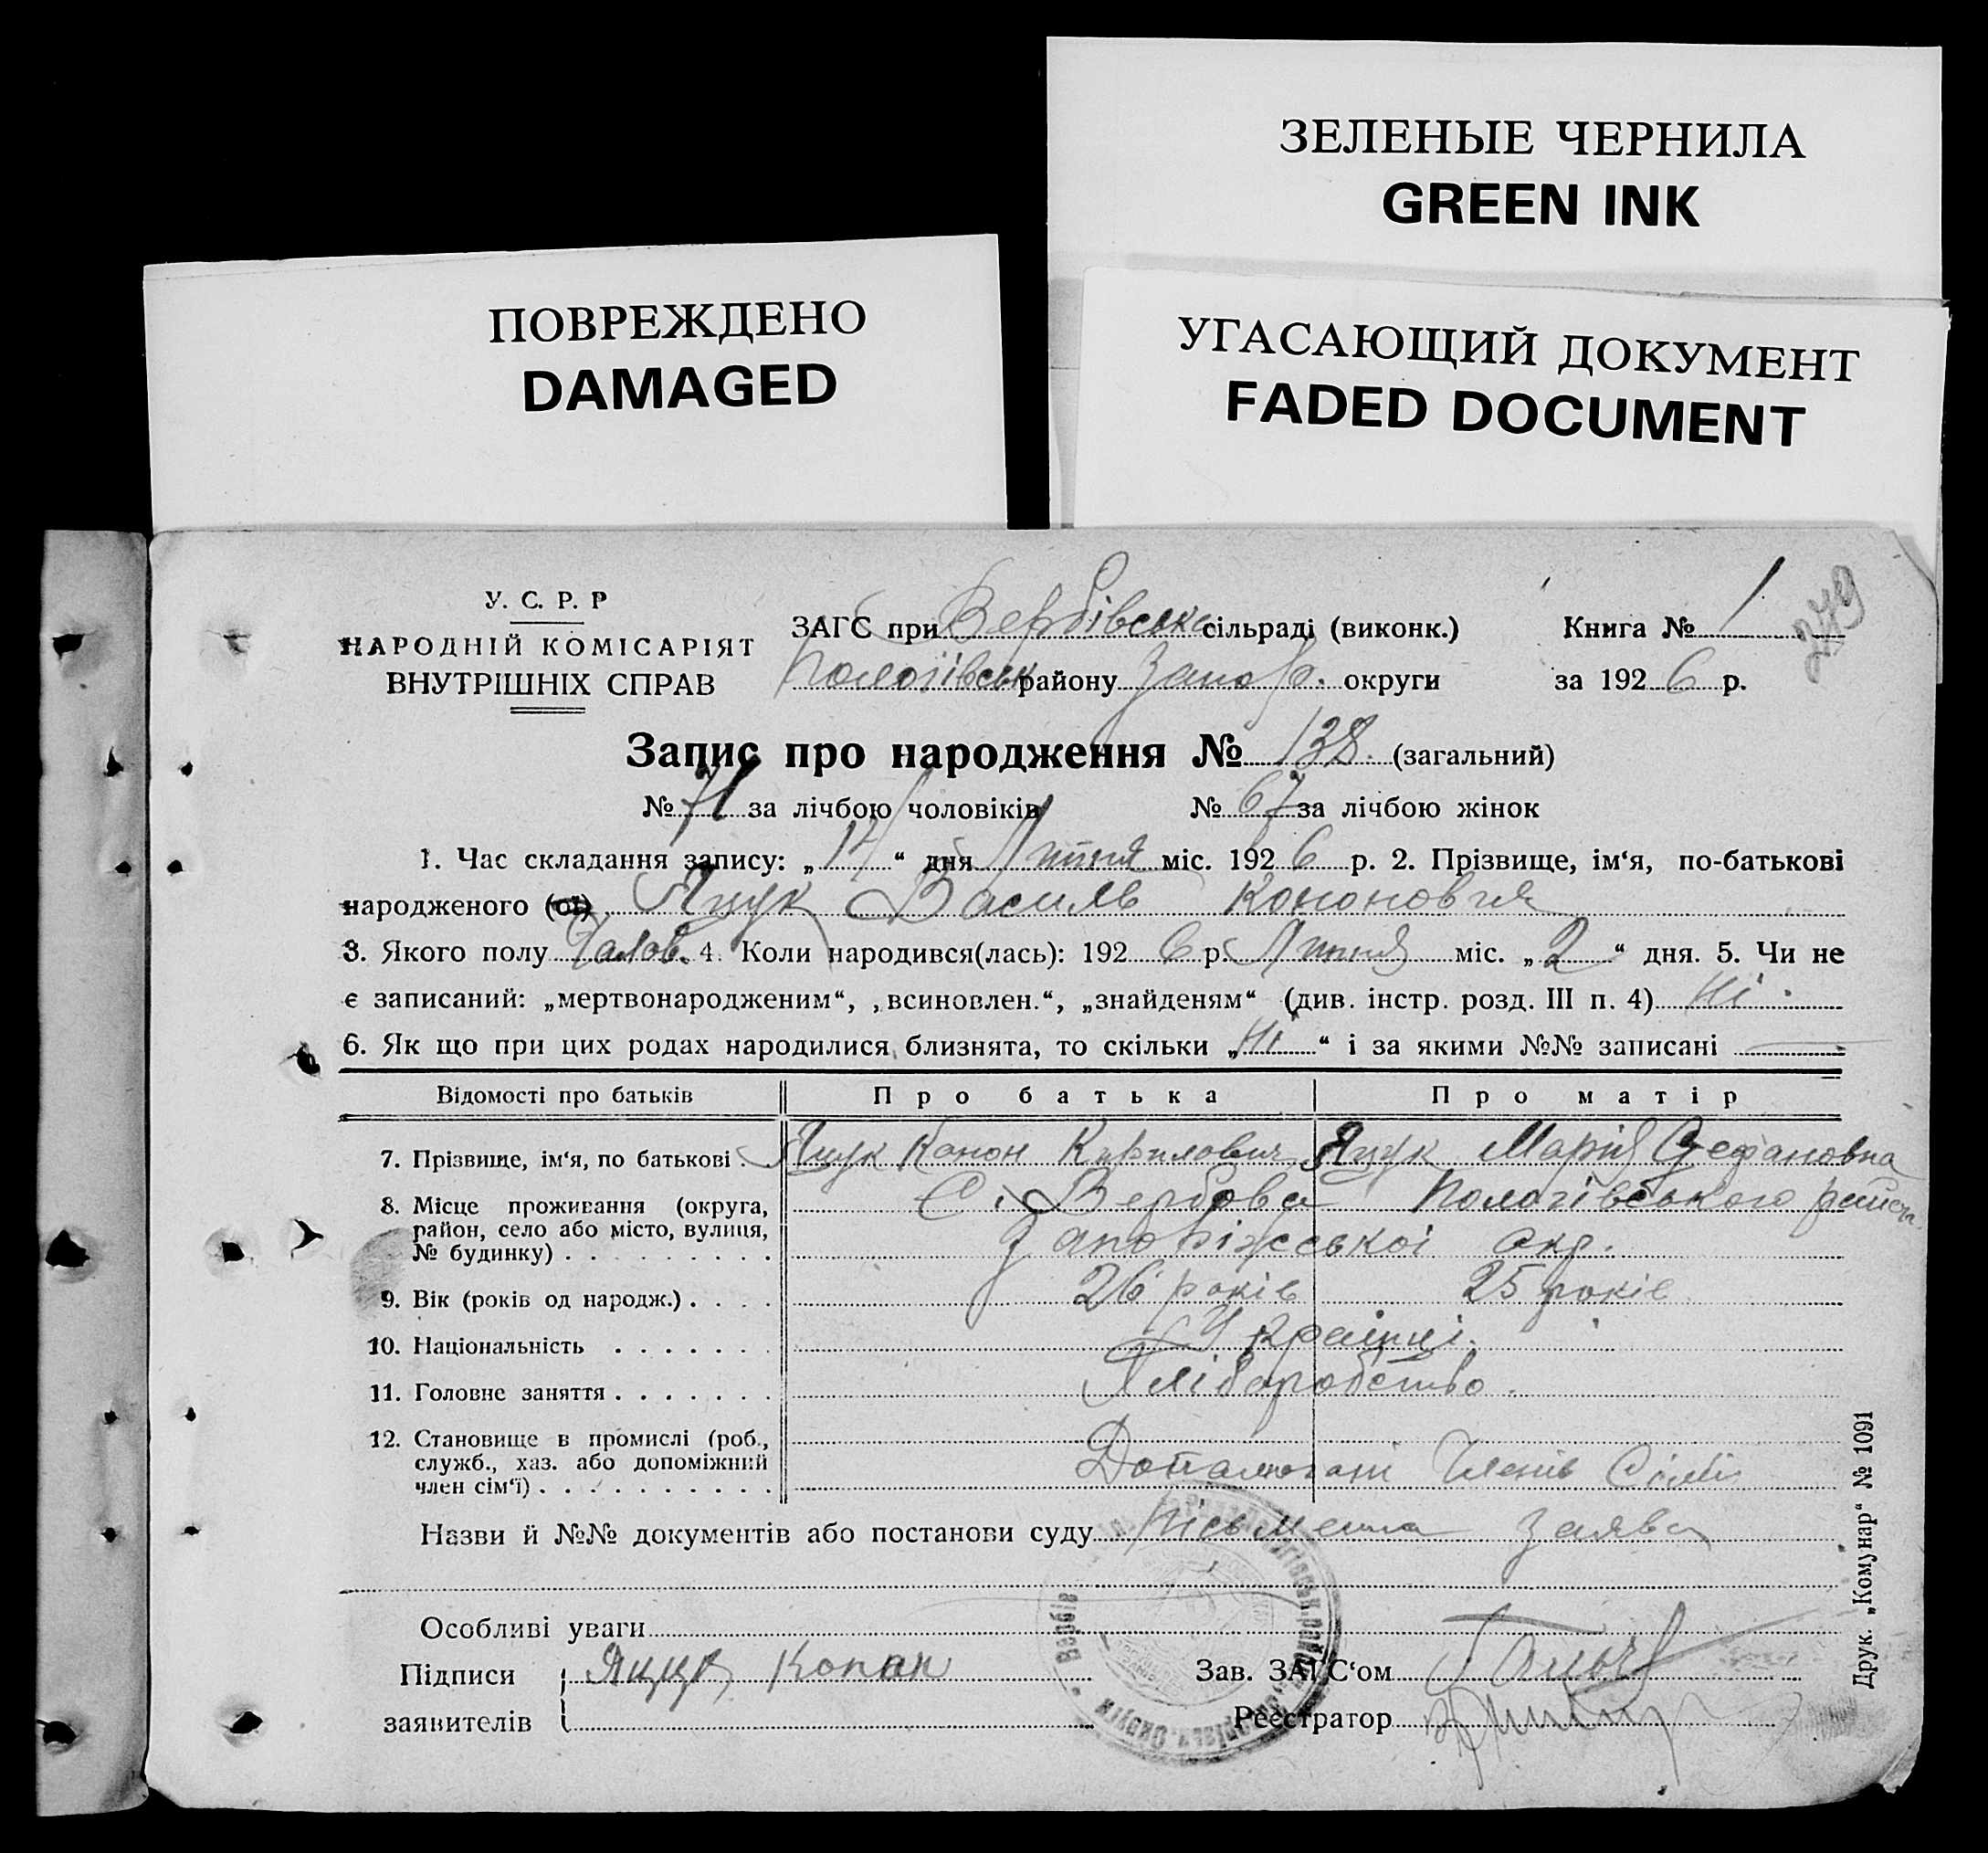 ЗЕЛЕНЫЕ ЧЕРНИЛА
GREEN INK
ПОВРЕЖДЕНО
DAMAGED
УГАСАЮЩИЙ ДОКУМЕНТ
FADED DOCUMENT
У. С. Р. Р
НАРОДНІЙ КОМІСАРІЯТ
ВНУТРІШНІХ СПРАВ
ЗАГС при Вербівська сільраді (виконк.) Книга № 1
279
Пологівськ району Запор. округи за 1926 р.
Запис про народження № 138. (загальний)
№ 71 за лічбою чоловіків № 67 за лічбою жінок
1. Час складання запису: „14“ дня Липня міс. 1926 р. 2. Прізвище, ім‘я, по-батькові
народженого (ої) Яцук Василь Кононовия
3. Якого полу Чалов. 4. Коли народився(лась): 1926 р. Липня міс. „2“ дня. 5. Чи не
є записаний: „мертвонародженим“, „всиновлен.“, „знайденям“ (див. інстр. розд. III п. 4) Ні.
6. Як що при цих родах народилися близнята, то скільки „Ні“ і за якими №№ записані —
Відомості про батьків Про батька Про матір
7. Прізвище, ім‘я, по батькові . Яцук Конон Кирилович Яцук Марія Стефановна
8. Місце проживання (округа, С. Вербова Пологівського району
район, село або місто, вулиця,
№ будинку) . . . . . . . . . Запоріжської окр.
9. Вік (років од народж.) . . . . 26 років 25 років
10. Національність . . . . . . . Україні.
11. Головне заняття . . . . . . . Хліборобство.
12. Становище в промислі (роб.,
служб., хаз. або допоміжний Допомогані Членів Сімї
член сім‘ї) . . . . . . . . . . .
Назви й №№ документів або постанови суду Письменна Заява
Особливі уваги
Підписи Яцук Конон Зав. ЗАГС‘ом
заявителів Реєстратор
Друк. „Комунар“ № 1091